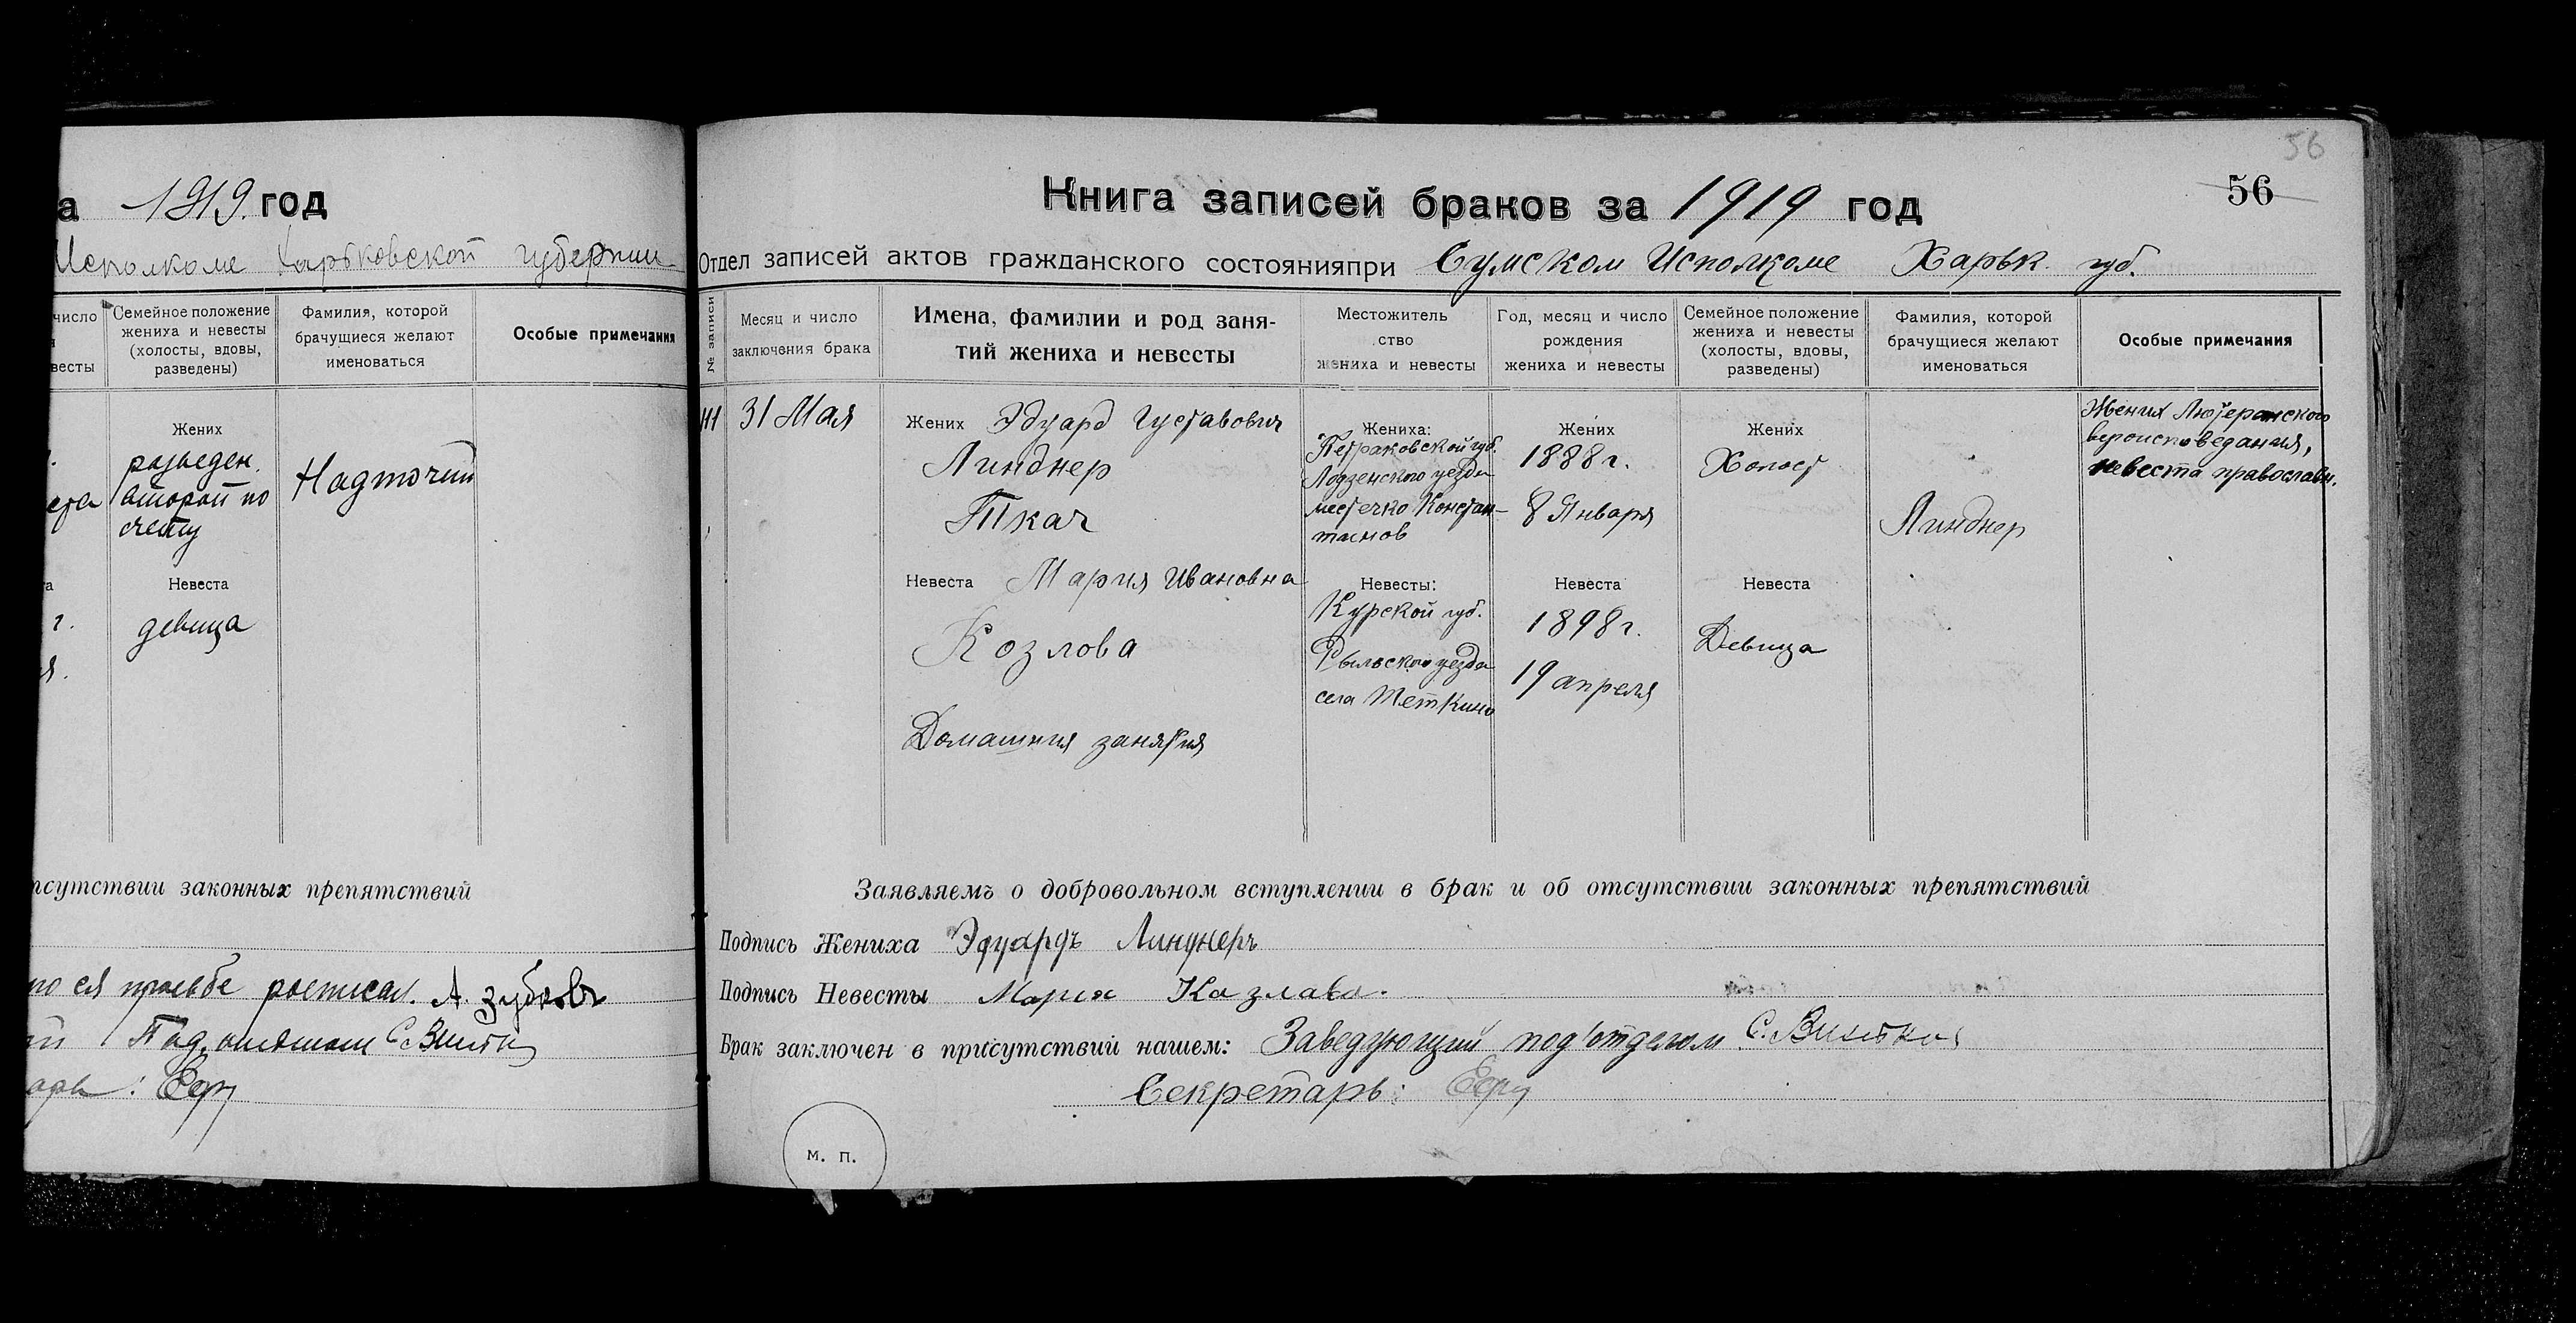 а 1919. год
Исполкоме Харьковской губернии
число
весты
Семейное положение
жениха и невесты
(холосты, вдовы,
разведены)
Фамилия, которой
брачущиеся желают
именоваться
Особые примечания
Жених
разведен.
второй по
счету
Надточий
Невеста
г.
девица
тсутствии законных препятствий
по ея просьбе А. Зубковъ
56
56
Книга записей браков за 1919 год
Отдел записей актов гражданского состоянияпри Сумском Исполкоме Харьк. губ.
№ записи
Месяц и число
заключения брака
Имена, фамилии и род заня-
тий жениха и невесты
Местожитель
ство
жениха и невесты
Год, месяц и число
рождения
жениха и невесты
Семейное положение
жениха и невесты
(холосты, вдовы,
разведены)
Фамилия, которой
брачущиеся желают
именоваться
Особые примечания
31 Мая
Жених Эдуард Густавович
Линднер
Ткач
Невеста Мария Ивановна
Козлова
Домашния занятия
Жениха:
Петраковской губ.
Лодзенского уезда
местечко Констан-
тинов
Невесты:
Курской губ.
Рыльского уезда
села Теткино
Жених
1888 г.
8 Января
Невеста
1898 г.
19 апреля
Жених
Холост
Невеста
Девица
Линднер
Жених Лютеранского
вероисповедания,
невеста православн.
Заявляемъ о добровольном вступлении в брак и об отсутствии законных препятствий
Подпись Жениха Эдуардъ Линднеръ
Подпись Невесты Мария Казлава.
Брак заключен в присутствий нашем: Заведующий под'отделом С.
Секретарь:
м. п.